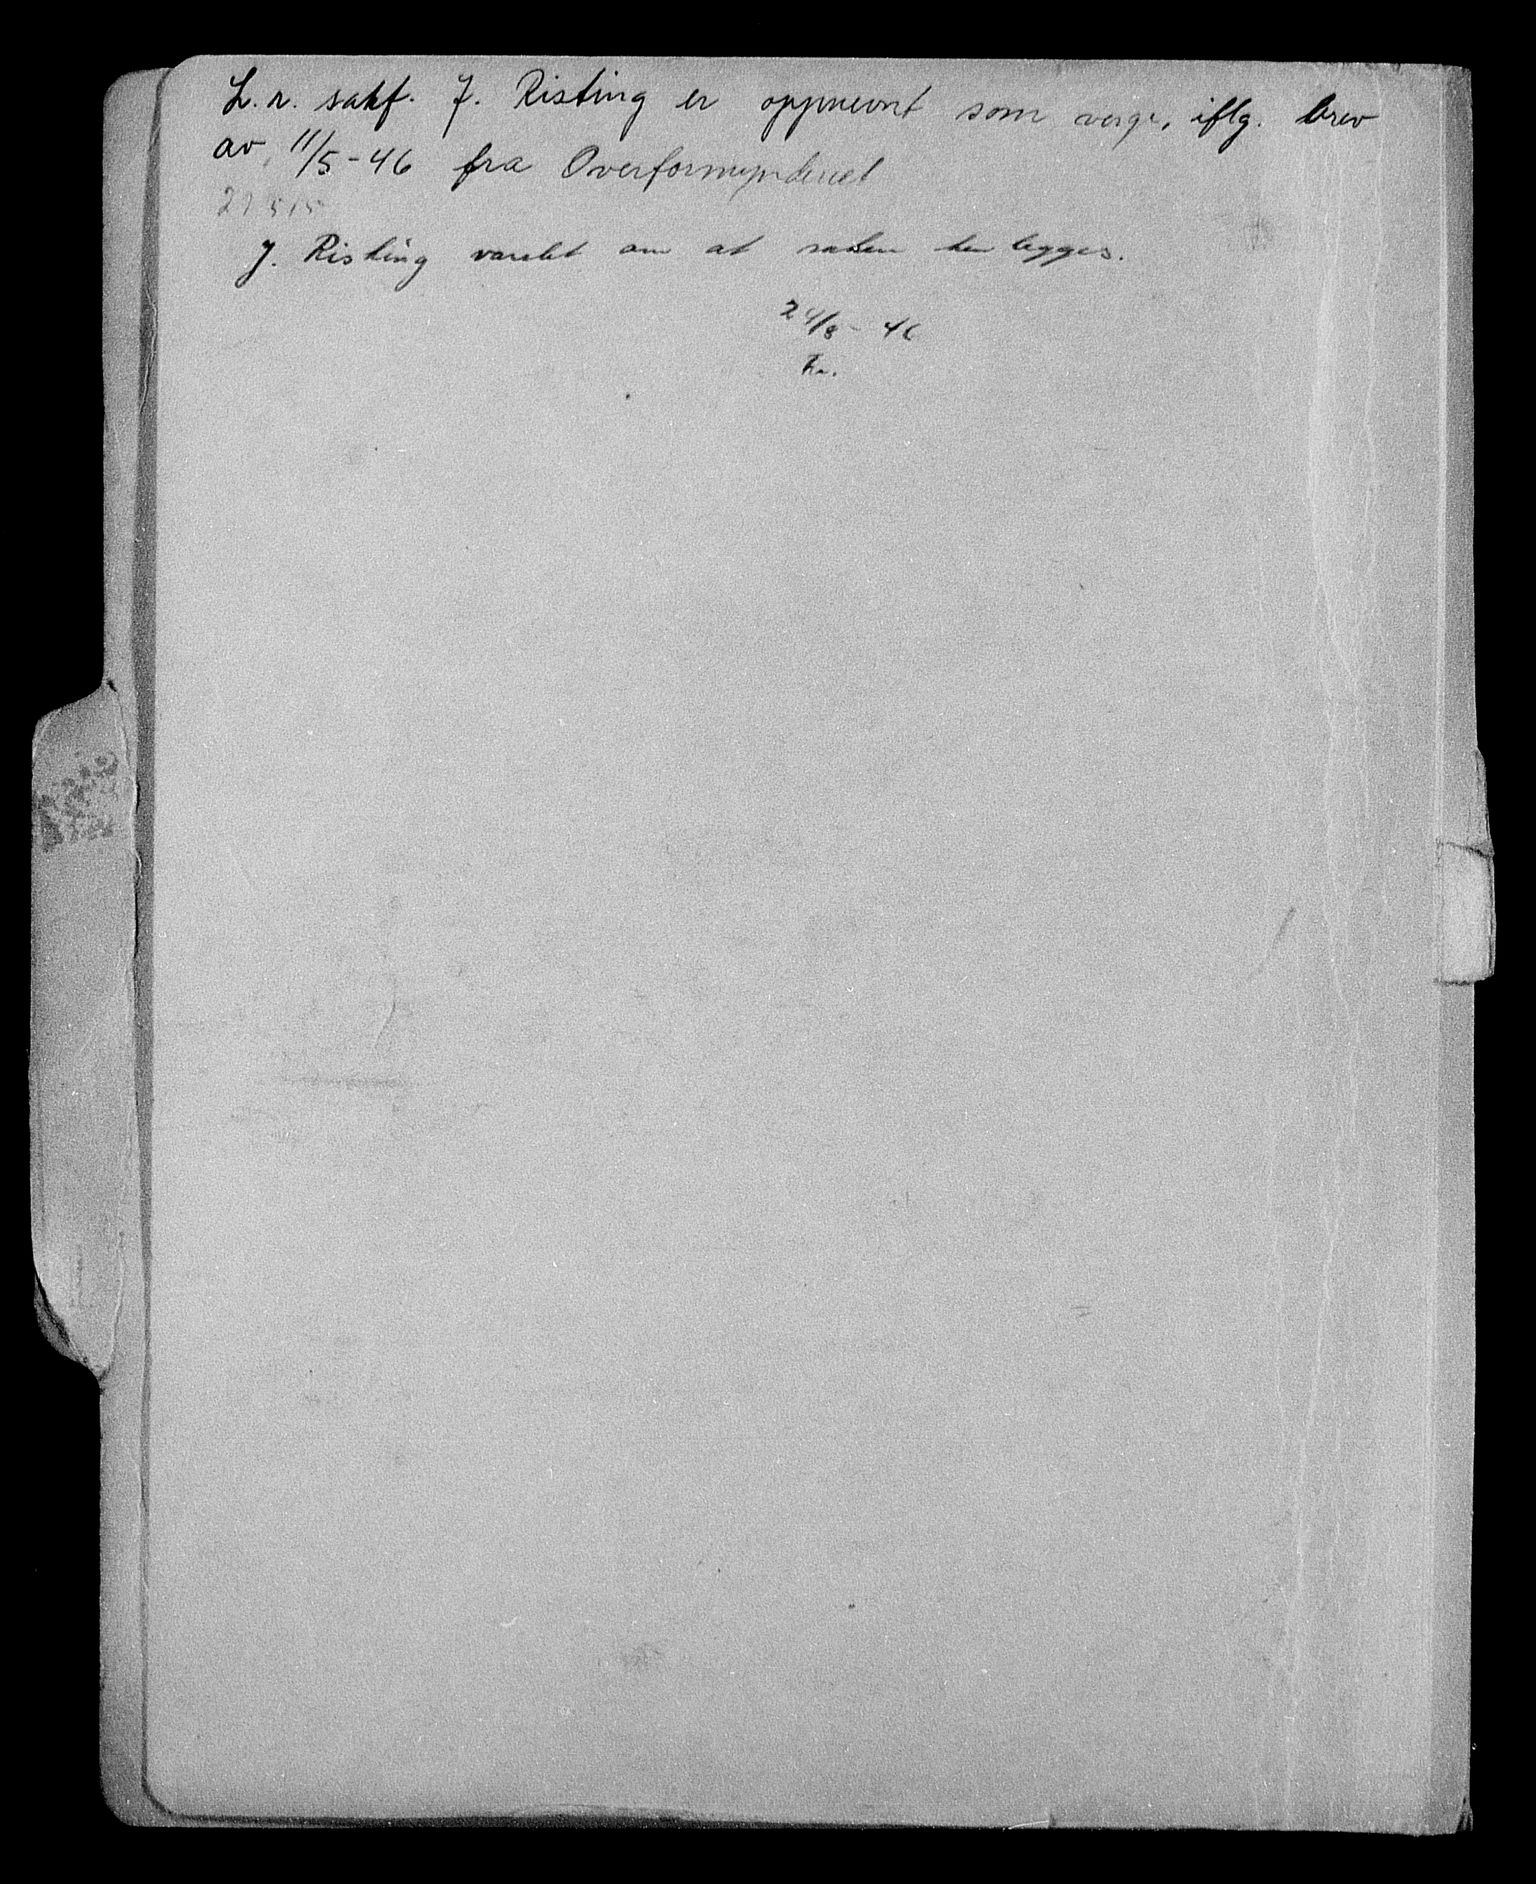 L.r. sakf. J. Risting er oppnevnt som verge, iflg. brev
av 11/5-46 fra Overformynderiet
J. Risting varslet om at saken henlegges.
24/8-46